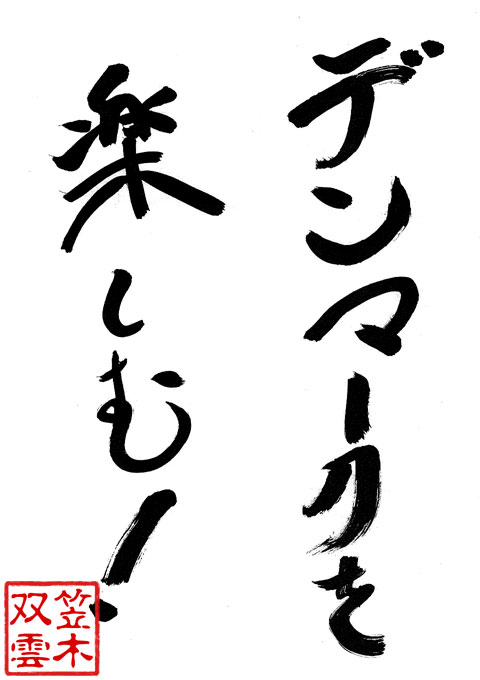 デンマークを
楽しむ！
笠木
双雲